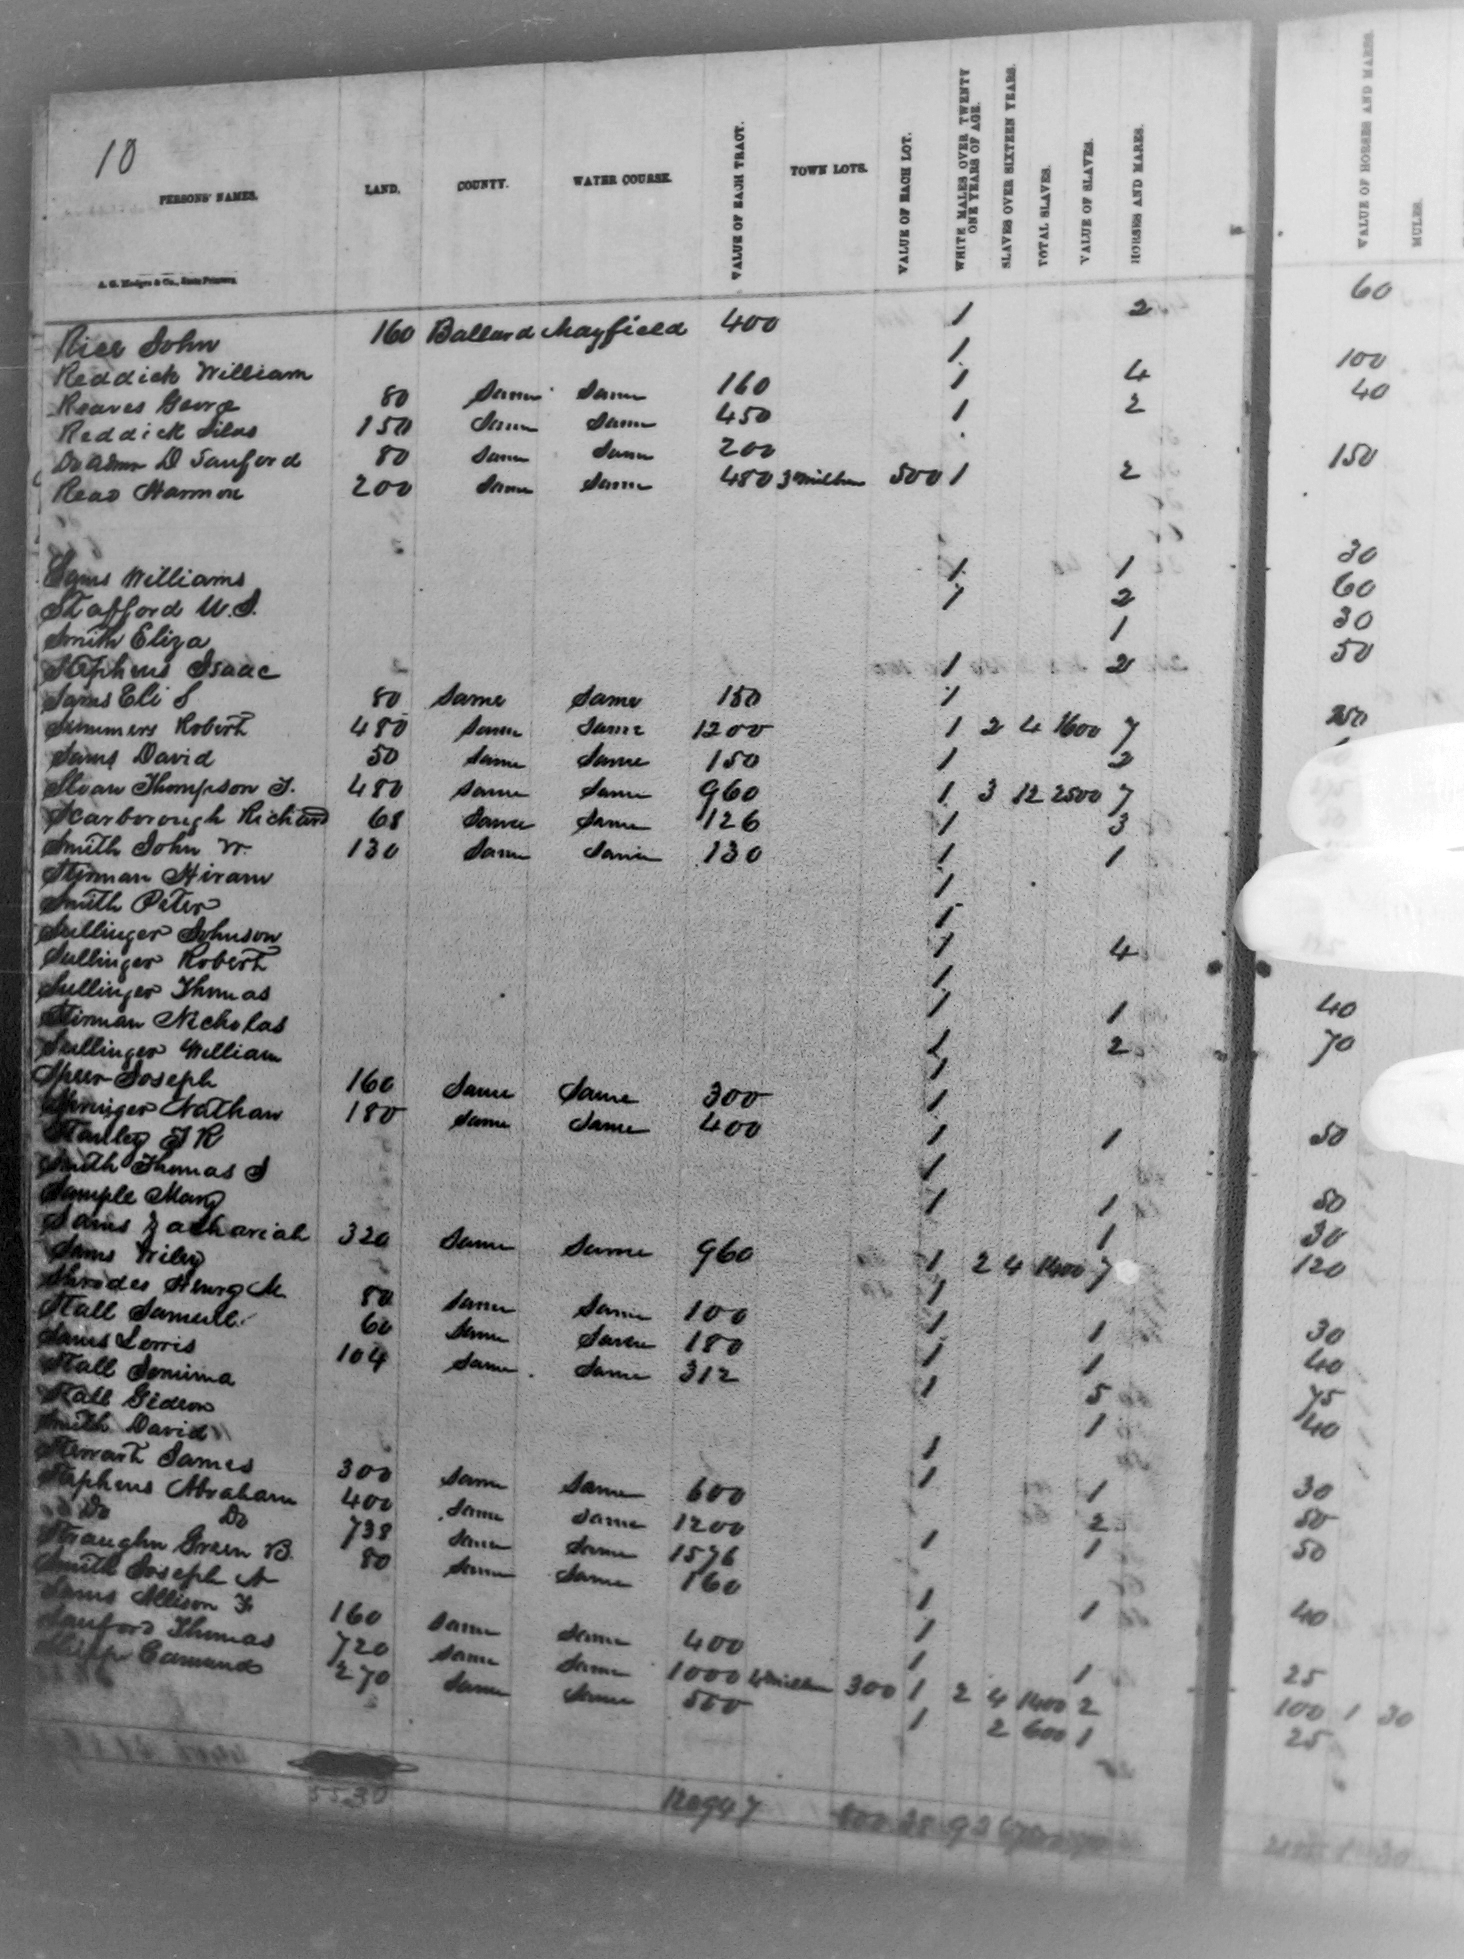 10
PERSONS' NAMES. LAND. COUNTY. WATER COURSE. VALUE OF EACH TRACT. TOWN LOTS. VALUE OF EACH LOT. WHITE MALES OVER TWENTY ONE YEARS OF AGE. SLAVES OVER SIXTEEN YEARS. TOTAL SLAVES. VALUE OF SLAVES. HORSES AND MARES. VALUE OF HORSES AND MARES. MULES.
A. G. Hodges & Co., State Printers.
Rice John 160 Ballard Mayfield 400 1 2 60
Reddick William 1
Reaves George 80 Same Same 160 1 4 100
Reddick Silas 150 Same Same 450 1 2 40
Do Admr D Sanford 80 Same Same 200
Read Harmon 200 Same Same 480 3 Millbn 500 1 2 150
Sams Williams 1 1 30
Stafford W. S. 1 2 60
Smith Eliza 1 30
Stephens Isaac 1 2 50
Sams Eli S 80 Same Same 150 1
Summers Robert 480 Same Same 1200 1 2 4 1600 7
Sams David 50 Same Same 150 1 2
Sloan Thompson J. 480 Same Same 960 1 3 12 2500 7
Scarborough Richard 68 Same Same 126 1 3
Smith John W. 130 Same Same 130 1 1
Stirman Hiram 1
Smith Peter 1
Sullinger Johnson 1 4
Sullinger Robert 1
Sullinger Thomas 1 1 40
Stirman Nicholas 1 2 70
Sullinger William 1
Speer Joseph 160 Same Same 300 1
Springer Nathan 180 Same Same 400 1 1 50
Stanley J R 1
Smith Thomas S 1 1 50
Sample Mary 1 30
Sams Zachariah 320 Same Same 960 1 2 4 1400 7 120
Sams Wiley 1
Shrodes Henry M 80 Same Same 100 1 1 30
Stall Samuel 60 Same Same 180 1 1 40
Sams Lorris 104 Same Same 312 1 5 75
Stall 1 40
Stall Gideon 1
Smith David 1 1 30
Stewart James 300 Same Same 600 2 50
Stephens Abraham 400 Same Same 1200 1 1 50
Do Do 738 Same Same 1576
Straughn Green B. 80 Same Same 160 1 1 40
Smith Joseph A 1
Sams Allison 160 Same Same 400 1 1 25
Sanford Thomas 720 Same Same 1000 4 Millbn 300 1 2 4 1400 2 100 1 30
Edmund 270 Same Same 500 1 2 600 1 25
5530